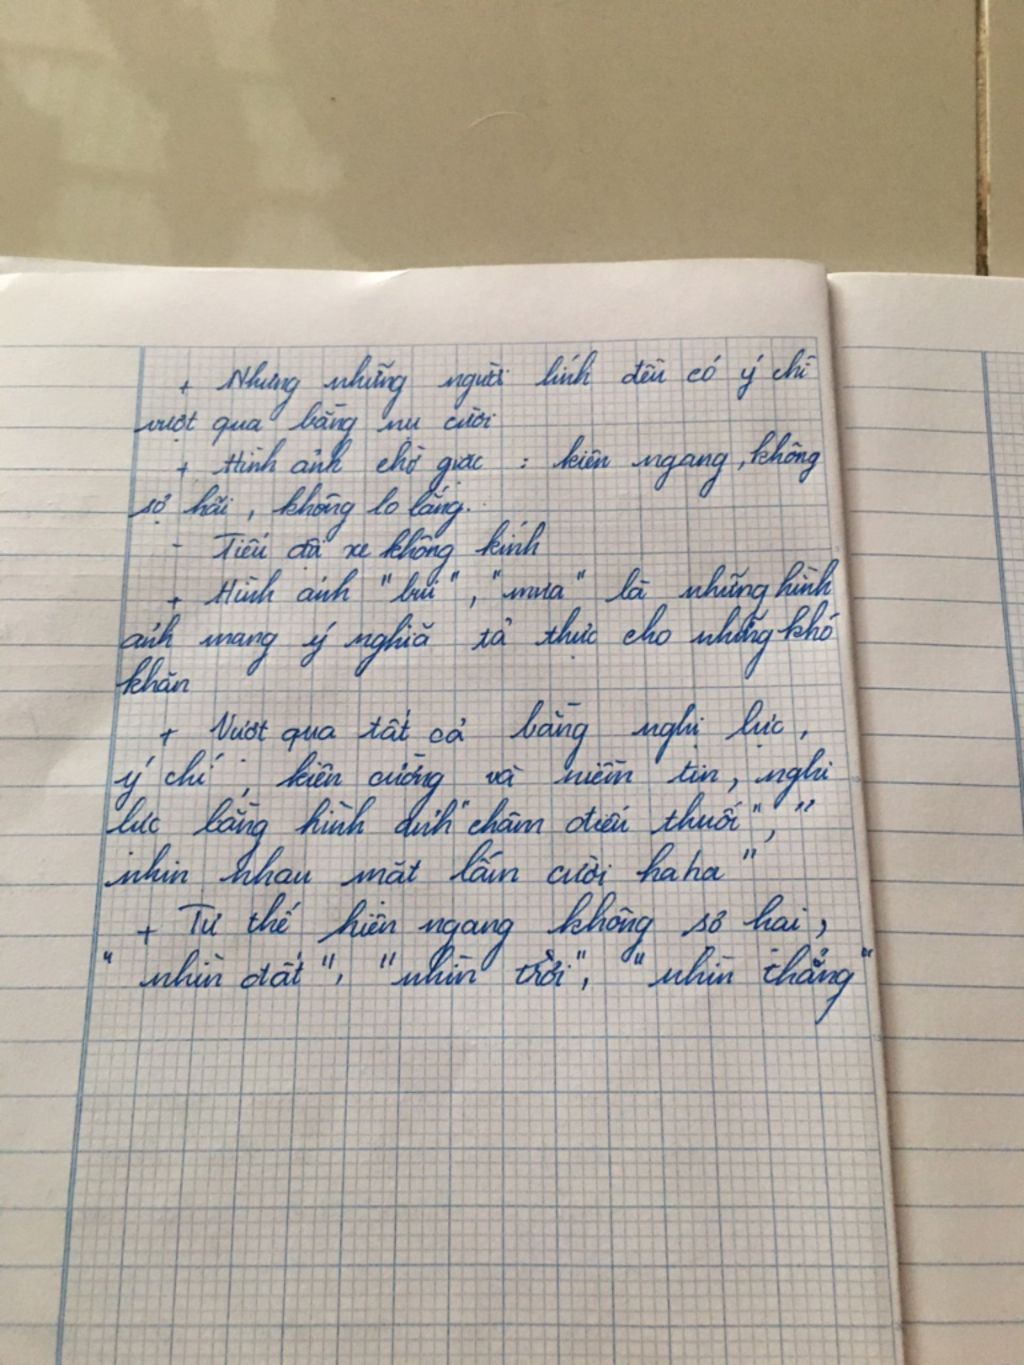 + Nhưng những người lính đều có ý chí
vượt qua bằng nụ cười
+ Hình ảnh chờ giặc : kiên ngang, không
sợ hãi, không lo lắng.
- Tiểu đội xe không kính
+ Hình ảnh "bụi", "mưa" là những hình
ảnh mang ý nghĩa tả thực cho những khó
khăn
+ Vượt qua tất cả bằng nghị lực,
ý chí ; kiên cường và niềm tin, nghị
lực bằng hình ảnh "châm điếu thuốc", "
nhìn nhau mặt lấm cười haha"
+ Tư thế hiên ngang không sợ hai,
"nhìn đất", "nhìn trời", "nhìn thẳng"